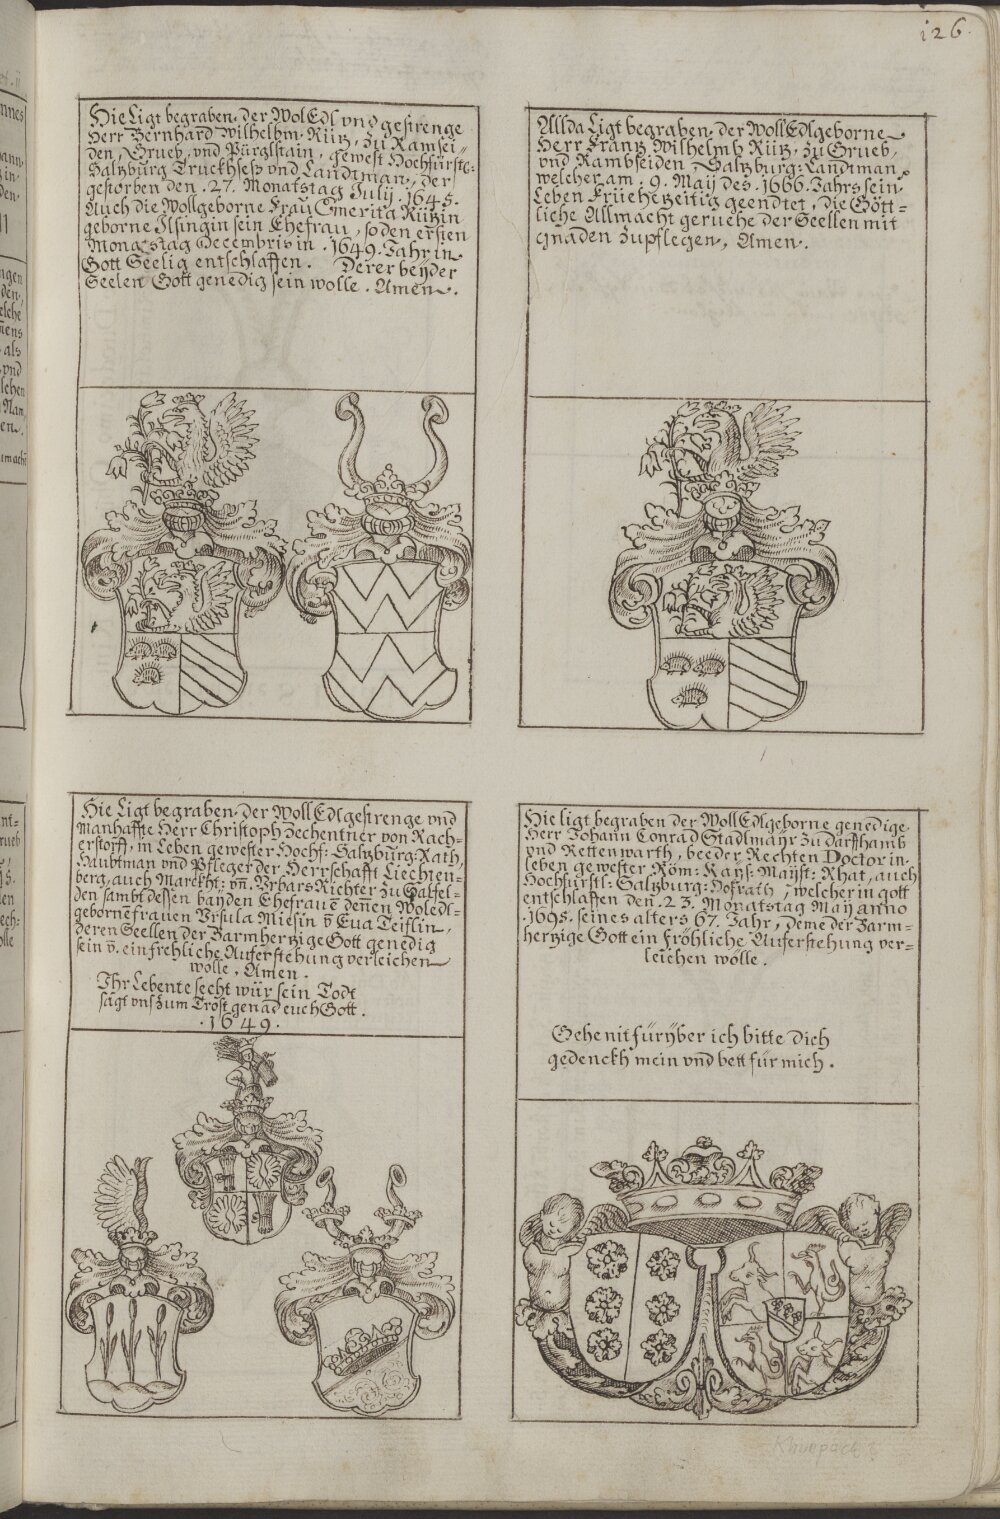 126.
Hie Ligt begraben. der WolEdl vnd gestrenge
Herr Bernhard Wilhelhm. Rüz, zu Ramsei=
den, Grueb, vnd Pürglstain, gewest Hochfürstl:
Salzburg Truckhseß vnd Landtman., der
gestorben den .27. Monatstag Julij. 1645.
Auch die Wollgeborne Frau Emerita Rüzin
geborne Ilsingin sein Ehefrau, so den ersten
Monatstag Decembris in .1649. Jahr in
Gott Seelig entschlaffen. Derer beÿder
Seelen Gott genedig sein wolle. Amen.
Allda Ligt begraben. der WollEdlgeborne
Herr Franz Wilhelmb Rüz. zu Grueb,
vnd Rambseiden Salzburg: Landtman
welcher am .9. Maij des .1666. Jahrs sein
Leben Früehezeitig geendtet, die Gött=
liche Allmacht geruehe der Seellen mit
gnaden zupflegen, Amen.
Hie Ligt begraben. der WollEdlgestrenge vnd
Manhaffte Herr Christoph Zechentner von Rach=
erstorff, in Leben gewester Hochf: Salzburg: Rath,
Haubtman vnd Pfleger der Herrschafft Liechten=
berg, auch Marckht: vn. Vrbars Richter zu Salfel=
den sambt dessen bayden Ehefraue dennen Woledl=
gebornefrauen Vrsula Miesin v Eua Teiflin,
deren Seellen der Barmherzige Gott genedig
sein v. ein frehliche Aufferstehung verleichen
wolle, Amen.
Ihr Lebente secht wür sein Todt
sagt vnß zum Trost genad euch Gott.
.1649.
Hie ligt begraben der WollEdlgeborne genedige
Herr Johann Conrad Stadlmaÿr zu Darffhamb
vnd Rettenwarth, beeder Rechten Doctor in
leben gewester Röm: Kayß: Mayst: Rhat, auch
Hochfürstl: Salzburg: Hofrath, welcher in gott
entschlaffen den .23. Monatstag Maij anno
.1695. seines alters 67. Jahr, deme der Barm=
herzige Gott ein fröhliche Auferstehung ver=
leichen wölle.
Gehe nit fürÿber ich bitte Dich
gedenckh mein vnd bett für mich.